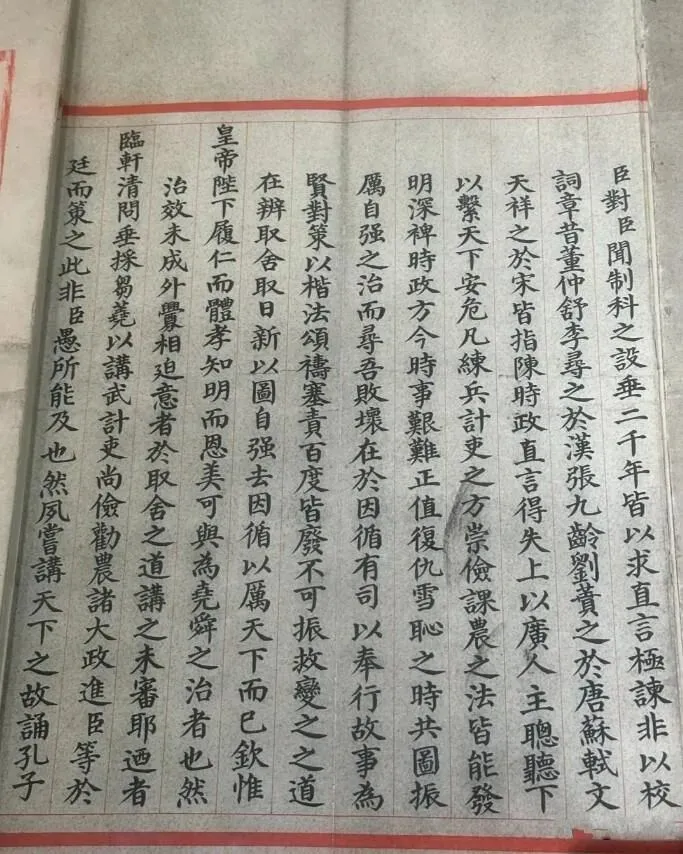 臣對臣聞制科之設垂二千年皆以求直言極諫非以校
詞章昔董仲舒李尋之於漢張九齡劉蕡之於唐蘇軾文
天祥之於宋皆指陳時政直言得失上以廣人主聰聽下
以繫天下安危凡練兵計吏之方崇儉課農之法皆能發
明深裨時政方今時事艱難正值復仇雪恥之時共圖振
厲自强之治而尋吾敗壞在於因循有司以奉行故事為
賢對策以楷法頌禱塞責百度皆廢不可振救變之之道
在辨取舍取日新以圖自强去因循以厲天下而已欽惟
皇帝陛下履仁而體孝知明而恩美可與為堯舜之治者也然
治效未成外釁相迫意者於取舍之道講之未審耶迺者
臨軒清問垂採芻蕘以講武計吏尚儉勸農諸大政進臣等於
廷而策之此非臣愚所能及也然夙嘗講天下之故誦孔子